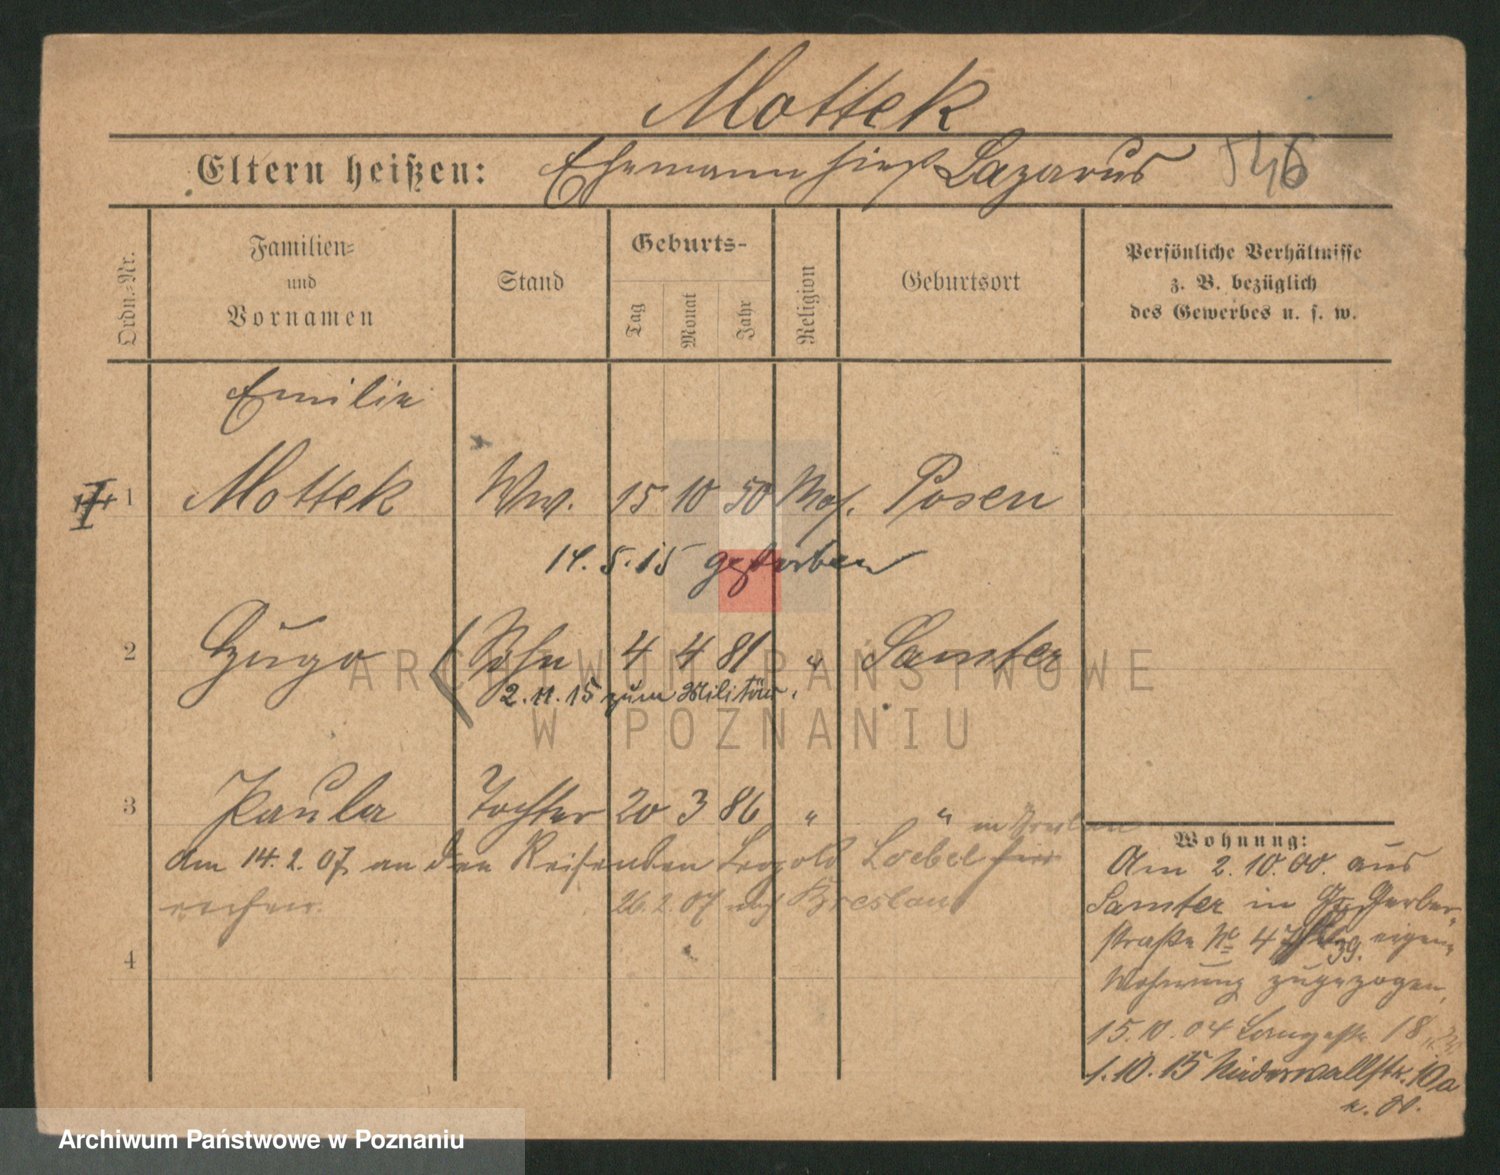 Mottek
Eltern heißen: Ehemann hieß Lazarus 546
Ordn.-Nr.
Familien-
und
Vornamen
Stand
Geburts-
Tag
Monat
Jahr
Religion
Geburtsort
Persönliche Verhältnisse
z. B. bezüglich
des Gewerbes u. s. w.
Emilie
1 Mottek Ww. 15 10 50 Mos. Posen
14.5.15 gestorben
2 Hugo Sohn 4 4 81 " Samter
2.11.15 zum Militär.
3 Paula Tochter 20 3 86 " "
in Breslau
Am 14.2.07 an den Reisenden Leopold Loebel
26.2.07 nach Breslau
4
Wohnung:
Am 2.10.00. aus
Samter in Gr. Gerber-
straße No 4 39. eigene
Wohnung zugezogen,
15.10.04 Langestr. 18
1.10.15 Niederwallstr. 10a
ARCHIWUM PAŃSTWOWE
W POZNANIU
Archiwum Państwowe w Poznaniu